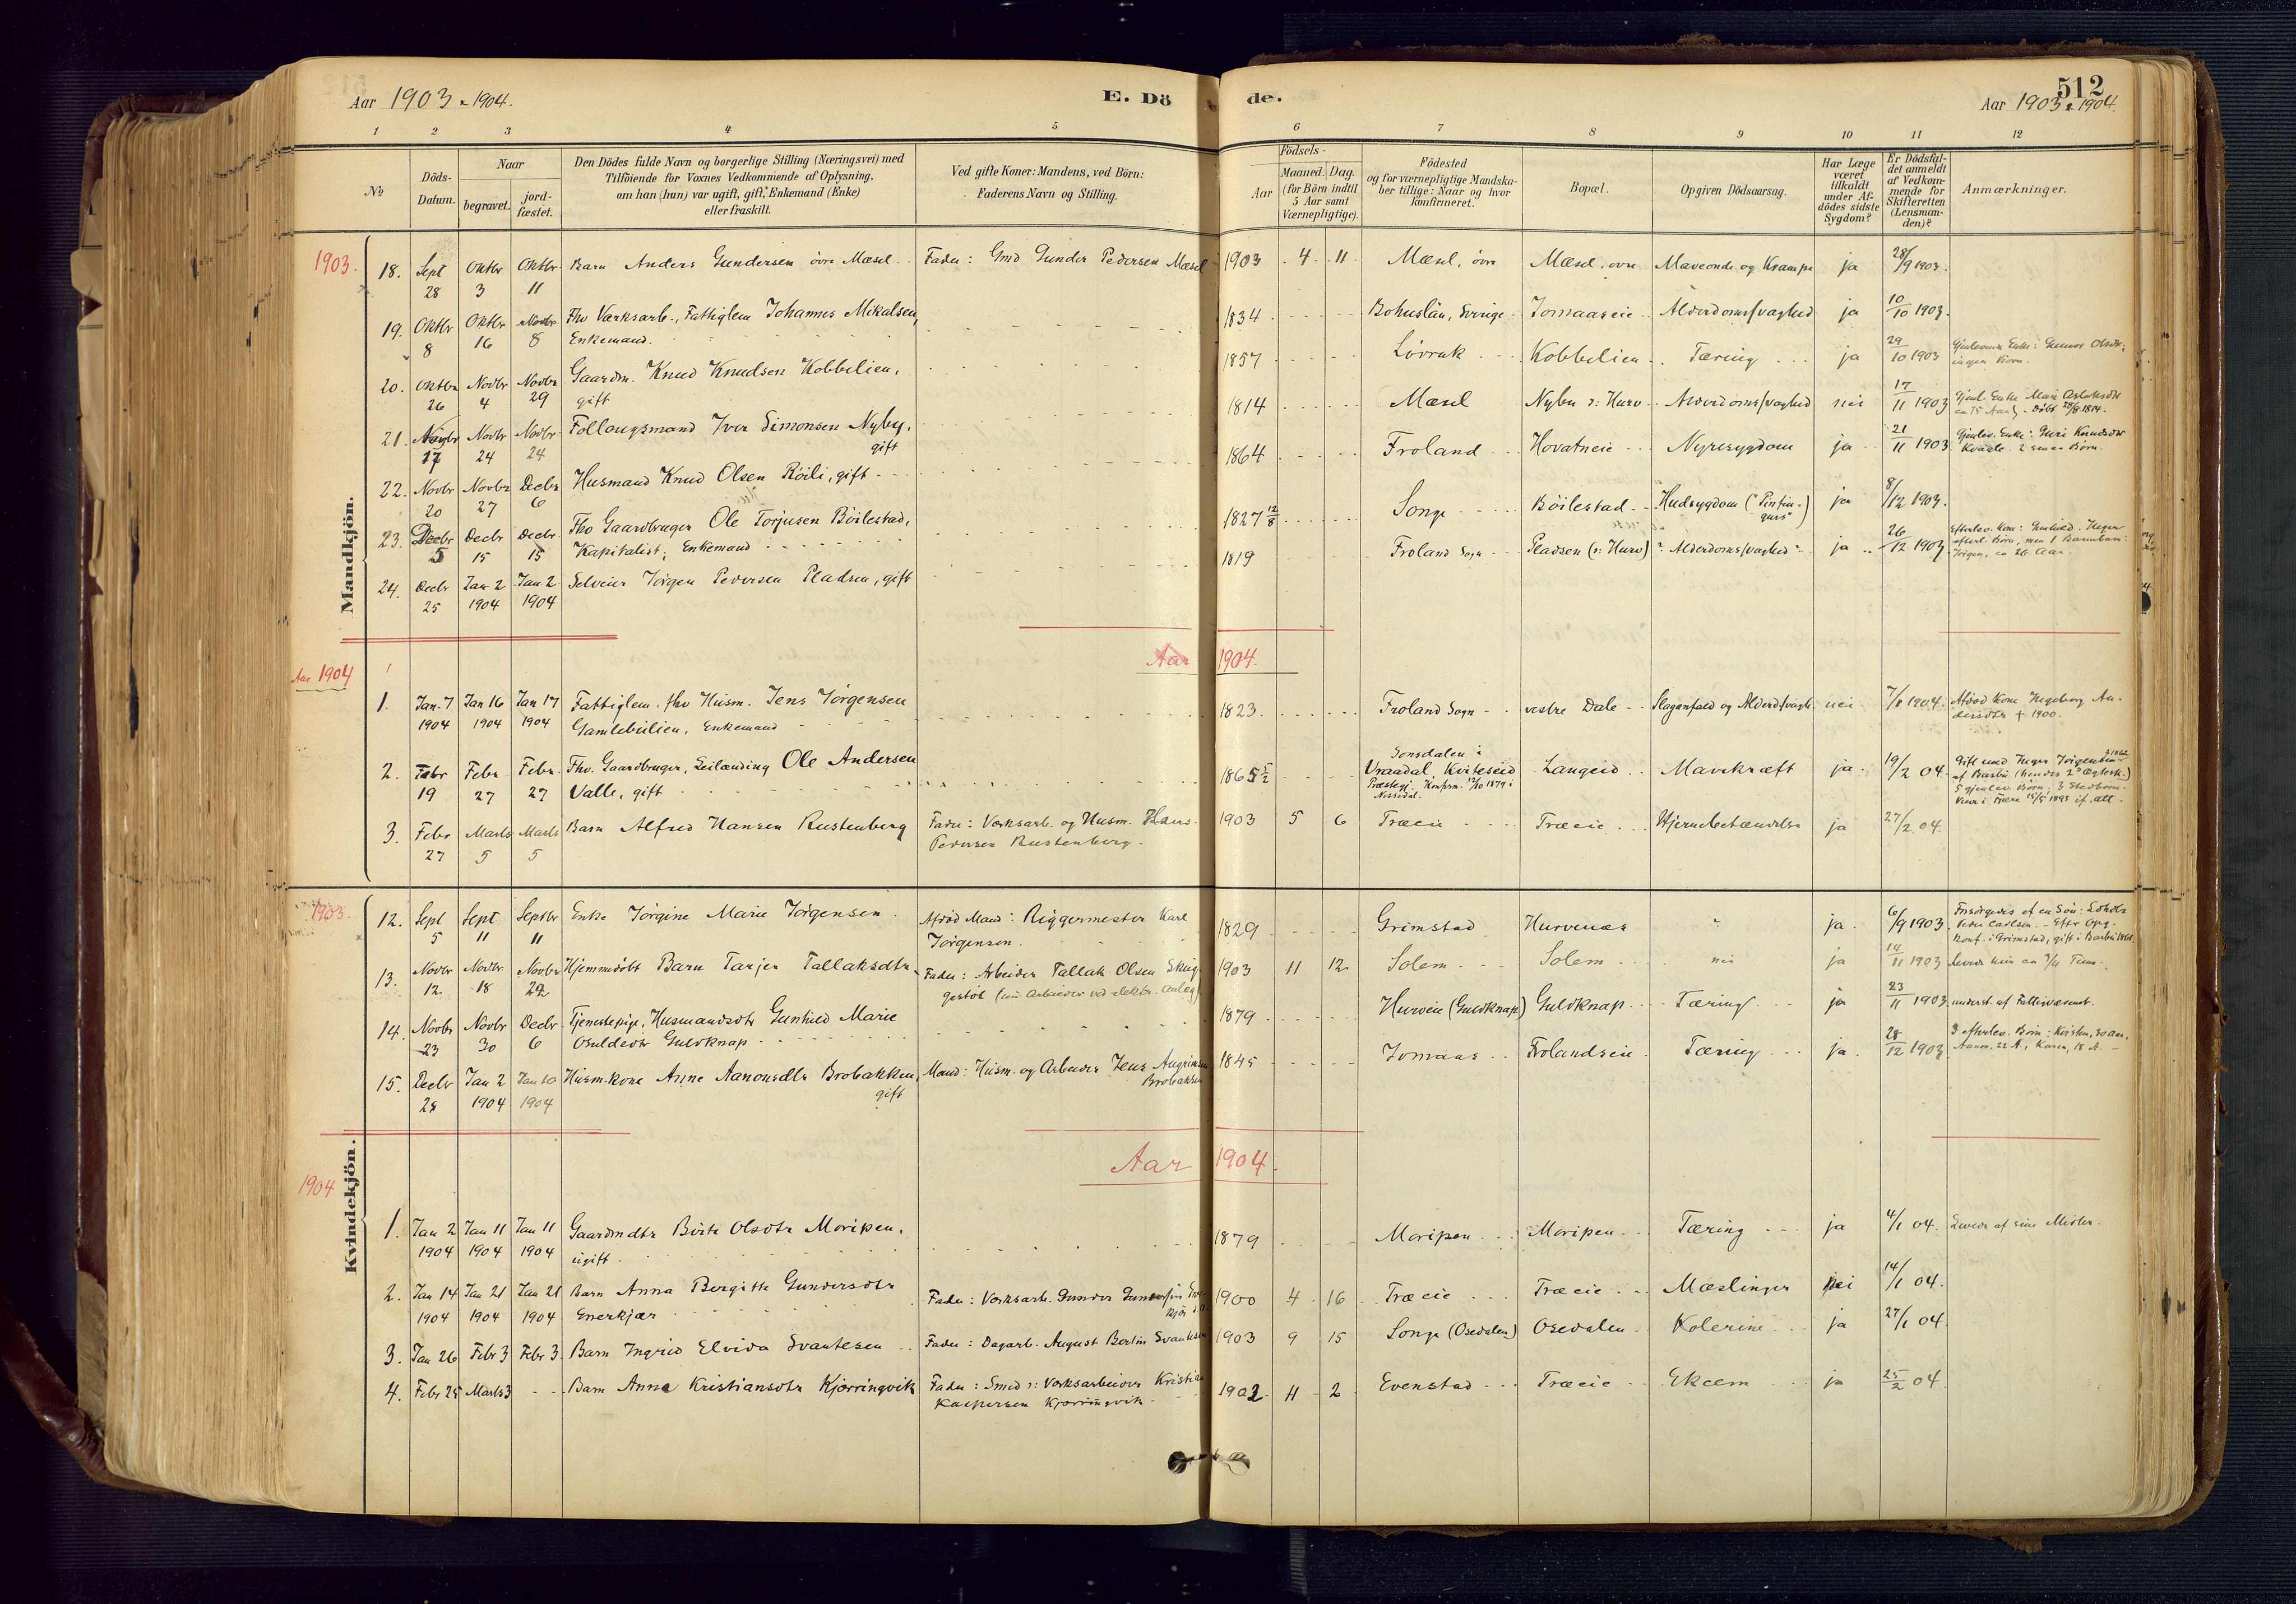 Aar 1903 & 1904.
E. Dö
de.
512
Aar 1903 & 1904.
1 2 3 4 5 6 7 8 9 10 11 12
No
Döds-Datum.
Naar
begravet.
jord-fæstet.
Den Dödes fulde Navn og borgerlige Stilling (Næringsvei) med
Tilföiende for Voxnes Vedkommende af Oplysning,
om han (hun) var ugift, gift, Enkemand (Enke)
eller fraskilt.
Ved gifte Koner: Mandens, ved Börn:
Faderens Navn og Stilling.
Födsels-
Aar
Maaned. Dag.
(for Börn indtil
5 Aar samt
Værnepligtige).
Födested
og for værnepligtige Mandska-
ber tillige: Naar og hvor
konfirmeret.
Bopæl.
Opgiven Dödsaarsag.
Har Læge
været
tilkaldt
under Af-
dödes sidste
Sygdom?
Er Dödsfal-
det anmeldt
af Vedkom-
mende for
Skifteretten
(Lensman-
den)?
Anmærkninger.
Mandkjön.
1903.
18. Sept 28 Oktbr 3 Oktbr. 11 Barn Anders Gundersen övre Mæsel Fader: Gmd Gunder Pedersen Mæsel 1903 4 11 Mæsel, övre Mæsel, övre Maveonde og Krampe ja 28/9 1903.
19. Oktbr 8 Oktbr 16 Novbr 8 Fhv Værksarb., Fattiglem Johannes Mikalsen,
Enkemand. 1834 Bohuslän, Sverige Jomaaseie Alderdomssvaghed ja 10/10 1903.
20. Oktbr 26 Novbr 4 Novbr 29 Gaardm. Knud Knudsen Kobbelien,
gift 1857 Lövrak Kobbelien Tæring ja 29/10 1903 Gjenlevende Enke: Gunvor Olsdtr,
ingen Börn.
21. Novbr 17 Novbr 24 Novbr 24 Follaugsmand Iver Simonsen Nyby,
gift 1814 Mæsel Nyby s: Hurv Alderdomssvaghed nei 17/11 1903 Gjenl. Enke Mari Aslaksdtr
22. Novbr 20 Novbr 27 Decbr 6 Husmand Knud Olsen Röili, gift 1864 Froland Hovatneie Nyresygdom ja 21/11 1903 Gjenlev. Enke: Guri Knudsdtr
2 smaa Börn.
23. Decbr 5 Decbr 15 Decbr 15 Fhv Gaardbruger Ole Torjusen Böilestad,
Kapitalist, Enkemand 1827 12/8 Songe Böilestad Hudsygdom ja 8/12 1903.
24. Decbr 25 Jan 2 1904 Jan 2 1904 Selveier Jörgen Pedersen Pladsen, gift 1819 Froland Sogn Pladsen (s: Hurv) Alderdomssvaghed ja 26/12 1903 Efterlev. Kone: Gunhild. Ingen
efterl. Börn, men 1 Barnebarn:
Jörgen, ca 26 Aar.
Aar 1904
Aar 1904.
1. Jan. 7 1904 Jan 16 1904 Jan 17 1904 Fattiglem. fhv Husm. Jens Jörgensen
Gamlebulien, Enkemand 1823. Froland Sogn vestre Dale Slaganfald og Alderdsvagh. nei 7/1 1904. Afdöd Kone Ingeborg An-
dersdtr † 1900.
2. Febr 19 Febr 27 Febr. 27 Fhv. Gaardbruger, Leilænding Ole Andersen
Valle, gift 1865 5/2 Sonsdalen i
Vraadal, Kviteseid
Præstegj. Konfirm. 12/10 1879 i
Nissedal. Langeid Mavekræft ja. 19/2 04. Gift med Inger Jörgensen
af Barbu (hendes 2det Ægtesk.)
5 gjenlev. Börn, 3 Stedbörn.
3. Febr 27 Marts 5 Marts 5 Barn Alfred Hansen Rustenberg Fader: Værksarb. og Husm. Hans
Pedersen Rustenberg. 1903 5 6 Træeie Træeie Hjernebetændelse ja 27/2 04.
Kvindekjön.
1903.
12. Sept 5 Sept 11 Septbr 11 Enke Jörgine Marie Jörgensen Afdöd Mand: Riggermester Karl
Jörgensen. 1829 Grimstad Hurvenæs ja. 6/9 1903 Forsörgedes af en Sön:
Peder Carlsen. Efter Opg.
Konf. i Grimstad, gift i Barbu 1861.
13. Novbr 12. Novbr. 18 Novbr 22 Hjemmedöbt Barn Tarjei Tallaksdtr Fader: Arbeider Tallak Olsen Skug-
gestöl (nu Arbeider ved elektr. Anlæg) 1903 11 12 Solem Solem nei ja 14/11 1903 Levede kun ca 3/4 Time.
14. Novbr 23 Novbr 30 Decbr 6 Tjenestepige, Husmandsdtr Gunhild Marie
Osuldsdtr Guldknap 1879 Hurveie (Guldknap) Guldknap Tæring ja 23/11 1903 underst. af Fattigvæsenet.
15. Decbr 28 Jan 2 1904 Jan 10 1904 Husm.kone Anne Aanonsdtr Brobakken,
gift Mand: Husm. og Arbeider Jens Augrimsen
Brobakken 1845 Jomaas Frolandseie Tæring ja. 28/12 1903 3 efterlev. Börn: Kristen, 30 Aar,
Aanon, 22 A., Karen, 18 A.
1904
Aar 1904.
1. Jan 2 1904 Jan 11 1904 Jan 11 1904 Gaardmdtr Birte Olsdtr Moripen,
ugift. 1879 Moripen Moripen Tæring ja 4/1 04. Levede af sine Midler.
2. Jan 14 1904 Jan 21 1904 Jan 21 1904 Barn Anna Bergitte Gundersdtr
Enerkjær Fader: Værksarb. Gunder 1900 4 16 Træeie Træeie Mæslinger nei 14/1 04.
3. Jan 26 Febr 3 Febr 3. Barn Ingrid Elvida Svantesen Fader: Dagarb. August Bertin Svantesen 1903 9 15 Songe (Osedalen) Osedalen Kolerine ja 27/1 04.
4. Febr 25 Marts 3 Barn Anna Kristiansdtr Kjørringvik Fader: Smed s: Værksarbeider Kristian
Kaspersen Kjørringvik 1902 11 2 Evenstad Træeie Ekcem ja 25/2 04